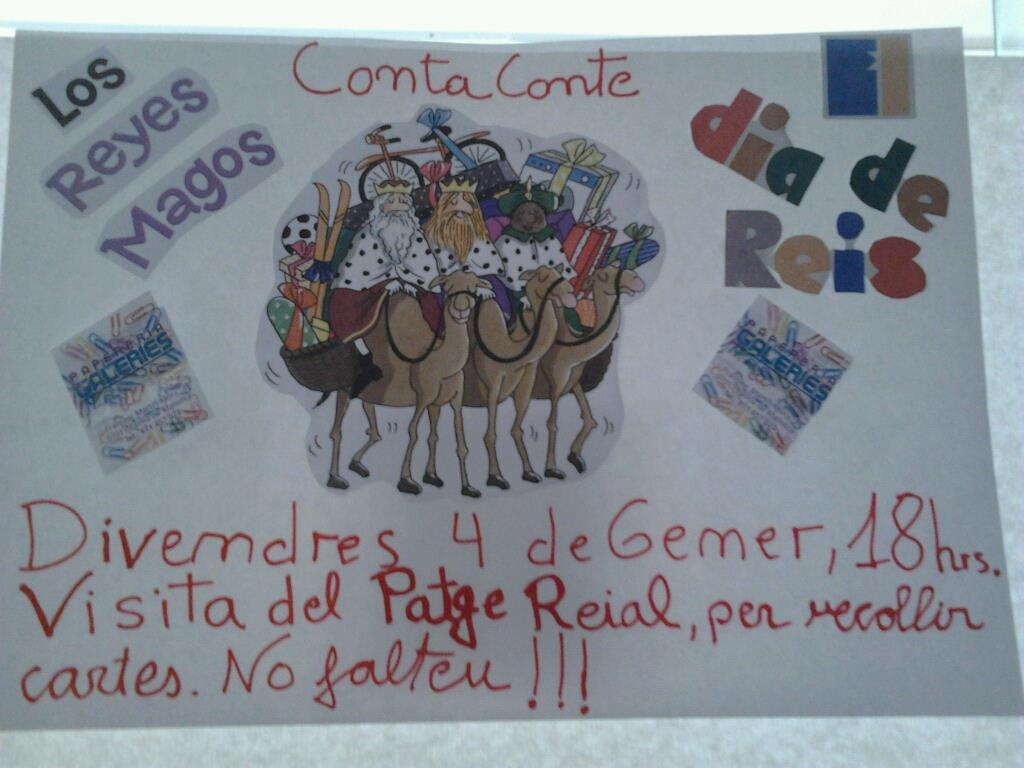 Conta Conte
Los
Reyes
Magos
El
dia de
Reis
PAPERERIA
GALERIES
PAPERERIA
GALERIES
Divendres 4 de Gener, 18 hrs.
Visita del Patge Reial, per recollir
cartes. No falteu !!!